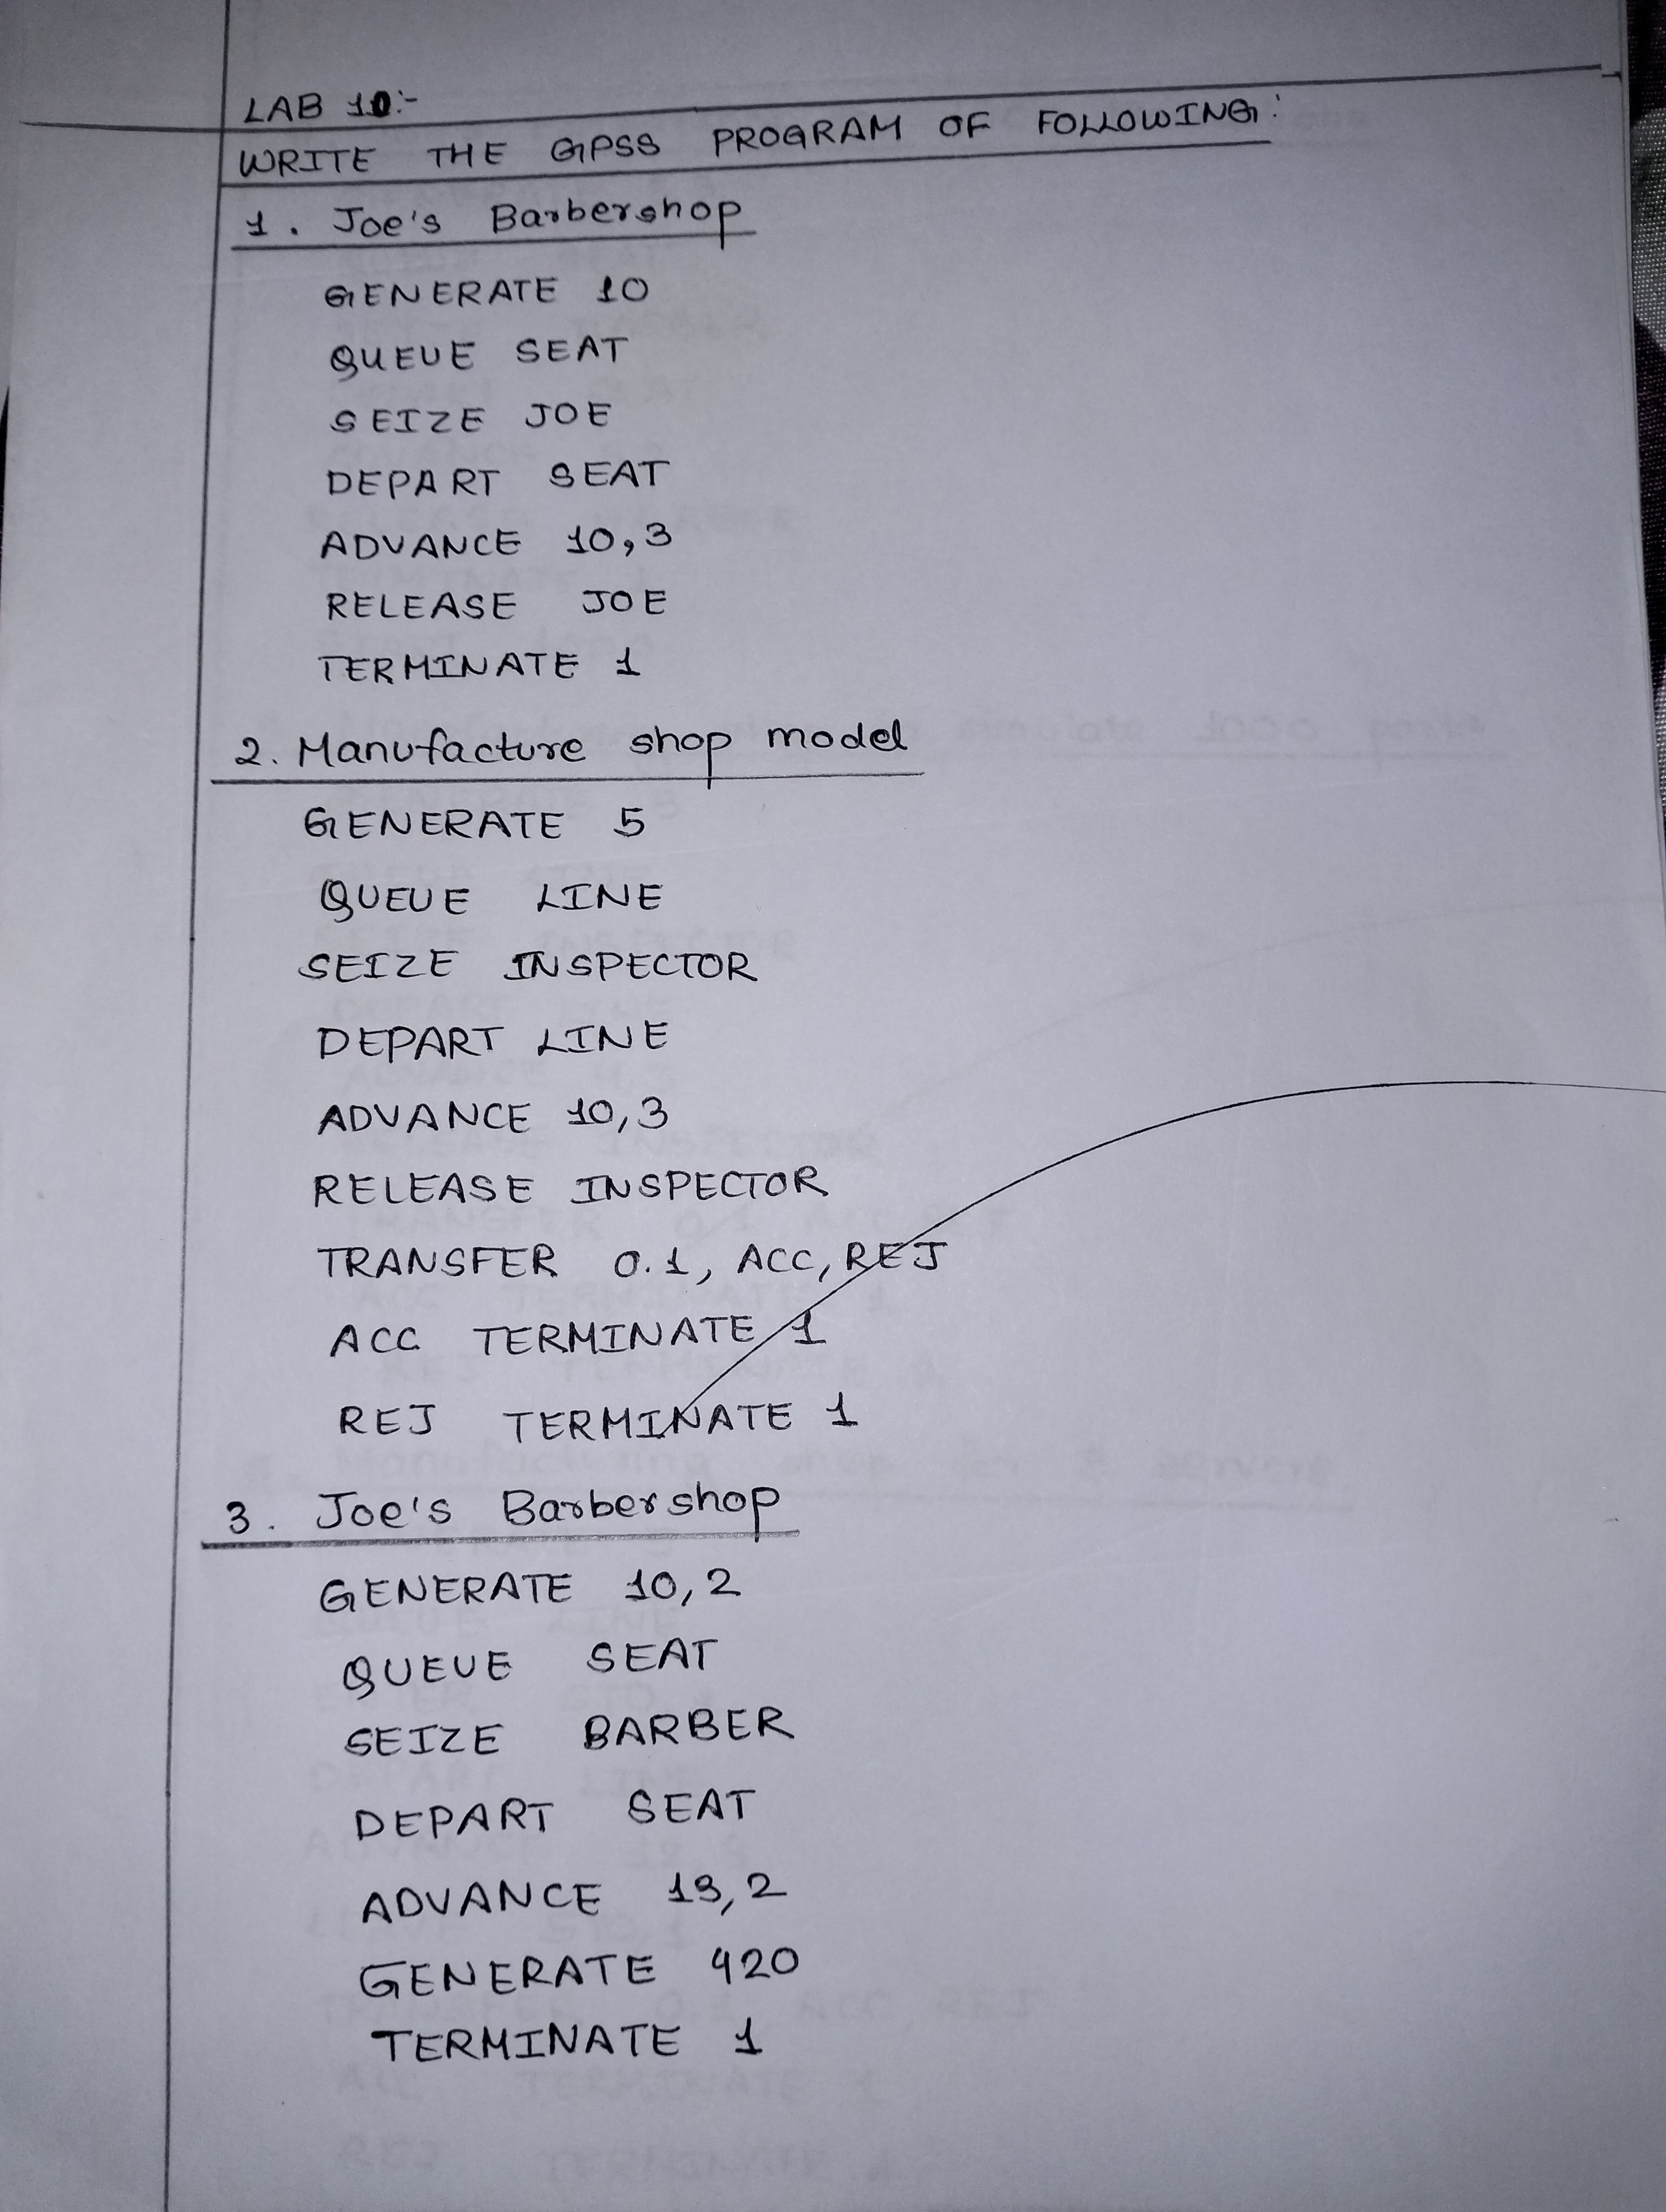 LAB 10:-
WRITE THE GPSS PROGRAM OF FOLLOWING:
1. Joe's Barbershop
GENERATE 10
QUEUE SEAT
SEIZE JOE
DEPART SEAT
ADVANCE 10,3
RELEASE JOE
TERMINATE 1
2. Manufacture shop model
GENERATE 5
QUEUE LINE
SEIZE INSPECTOR
DEPART LINE
ADVANCE 10,3
RELEASE INSPECTOR
TRANSFER 0.1, ACC, REJ
ACC TERMINATE 1
REJ TERMINATE 1
3. Joe's Barbershop
GENERATE 10,2
QUEUE SEAT
SEIZE BARBER
DEPART SEAT
ADVANCE 13,2
GENERATE 420
TERMINATE 1